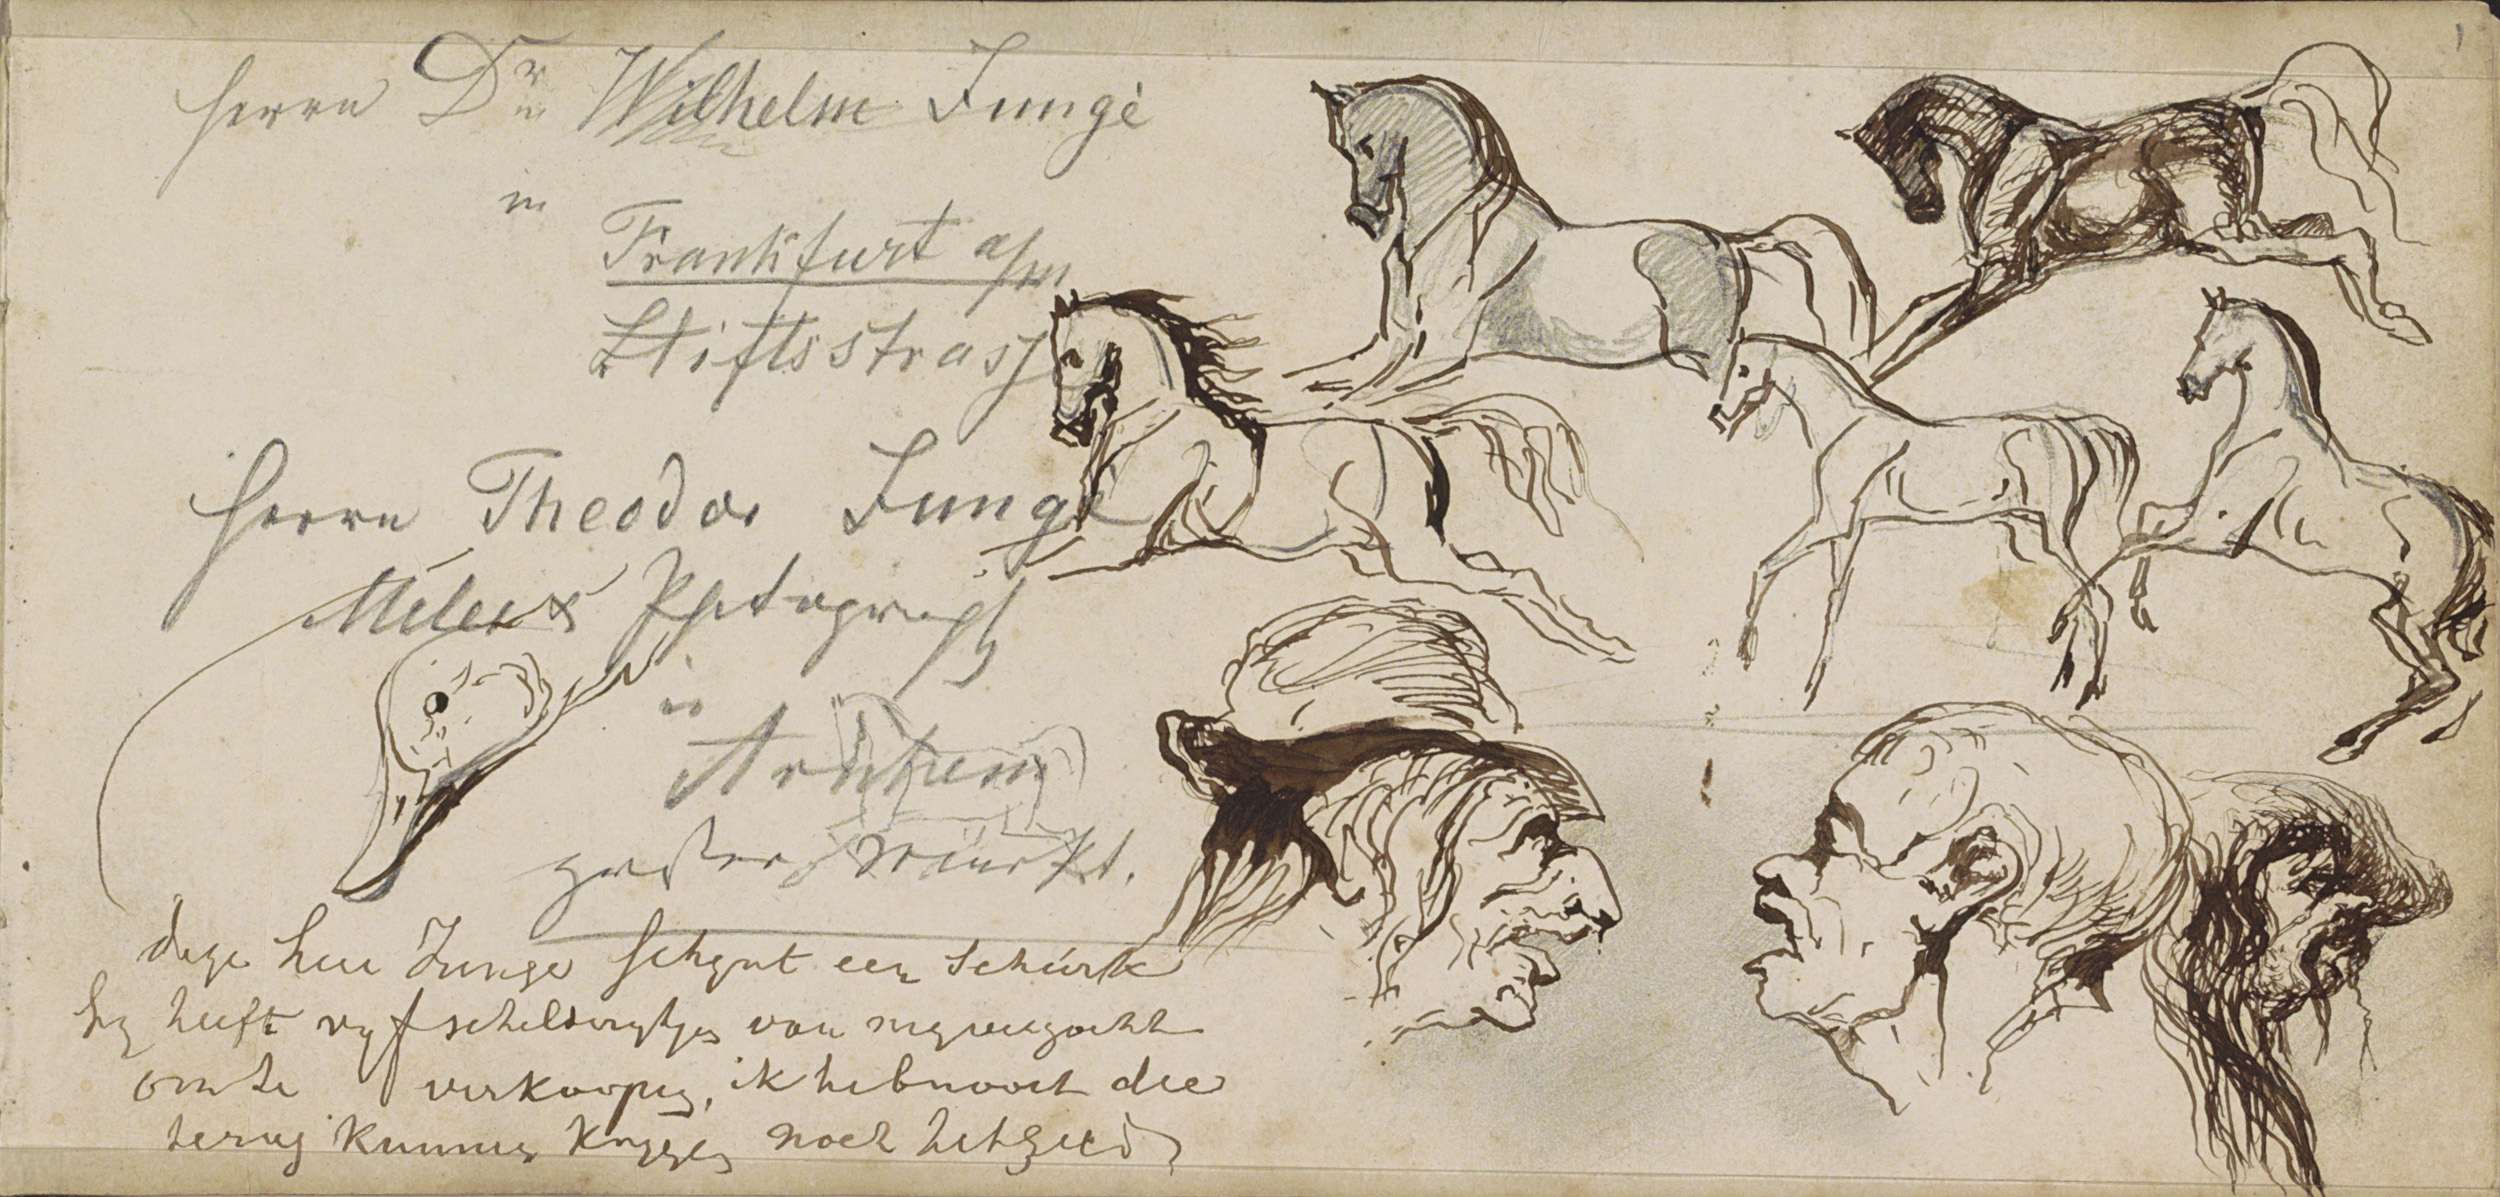 Herrn Dr Wilhelm Junge
in
Frankfurt a/m
Stiftsstrasse
Herrn Theodor Junge
Maler & Photograph
in
Arnheim
großer Markt.
deze heer Junge schynt een schurk
hy heeft vyf schilderytjes van my verzocht
om te verkoopen, ik heb nooit die
terug kunnen krygen noch het geld
1